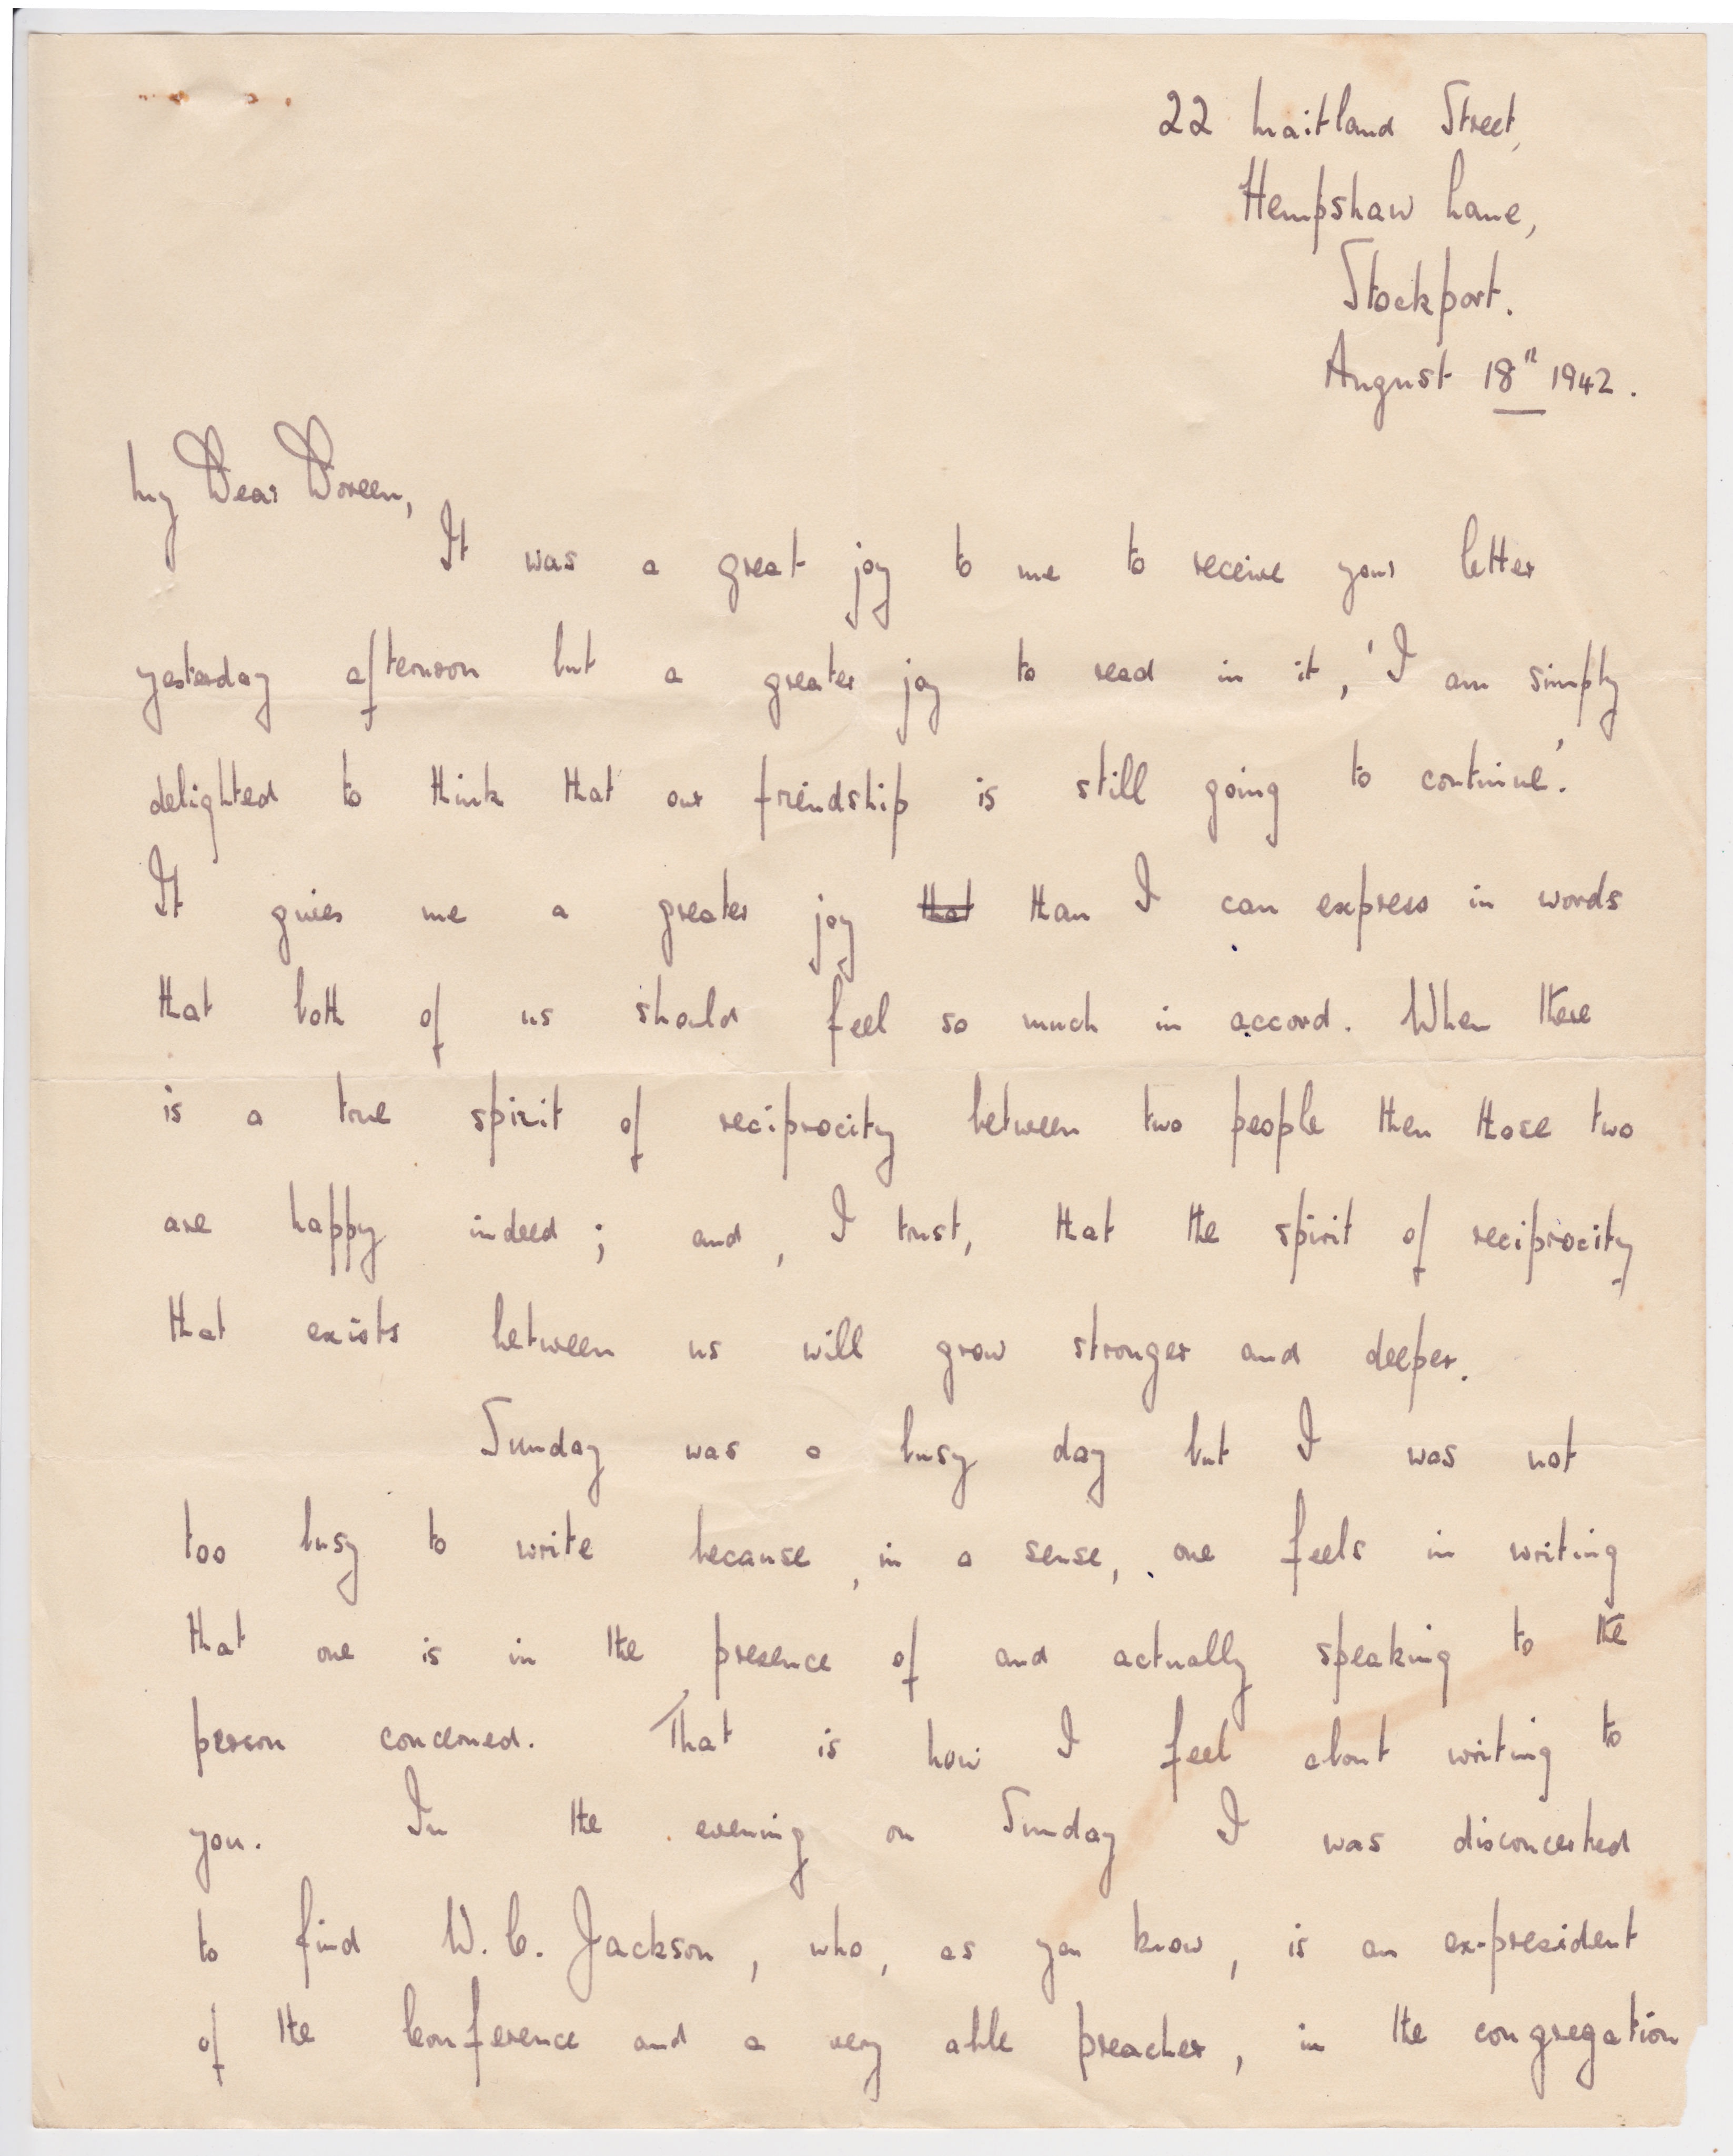 22 Maitland Street,
Hempshaw Lane,
Stockport.
August 18th 1942.
My Dear Doreen,
It was a great joy to me to receive your letter
yesterday afternoon but a greater joy to read in it, 'I am simply
delighted to think that our friendship is still going to continue.'
It gives me a greater joy that than I can express in words
that both of us should feel so much in accord. When there
is a true spirit of reciprocity between two people then those two
are happy indeed; and, I trust, that the spirit of reciprocity
that exists between us will grow stronger and deeper.
Sunday was a busy day but I was not
too busy to write because, in a sense, one feels in writing
that one is in the presence of and actually speaking to the
person concerned. That is how I feel about writing to
you. In the evening on Sunday I was disconcerted
to find W. C. Jackson, who, as you know, is an ex-president
of the Conference and a very able preacher, in the congregation